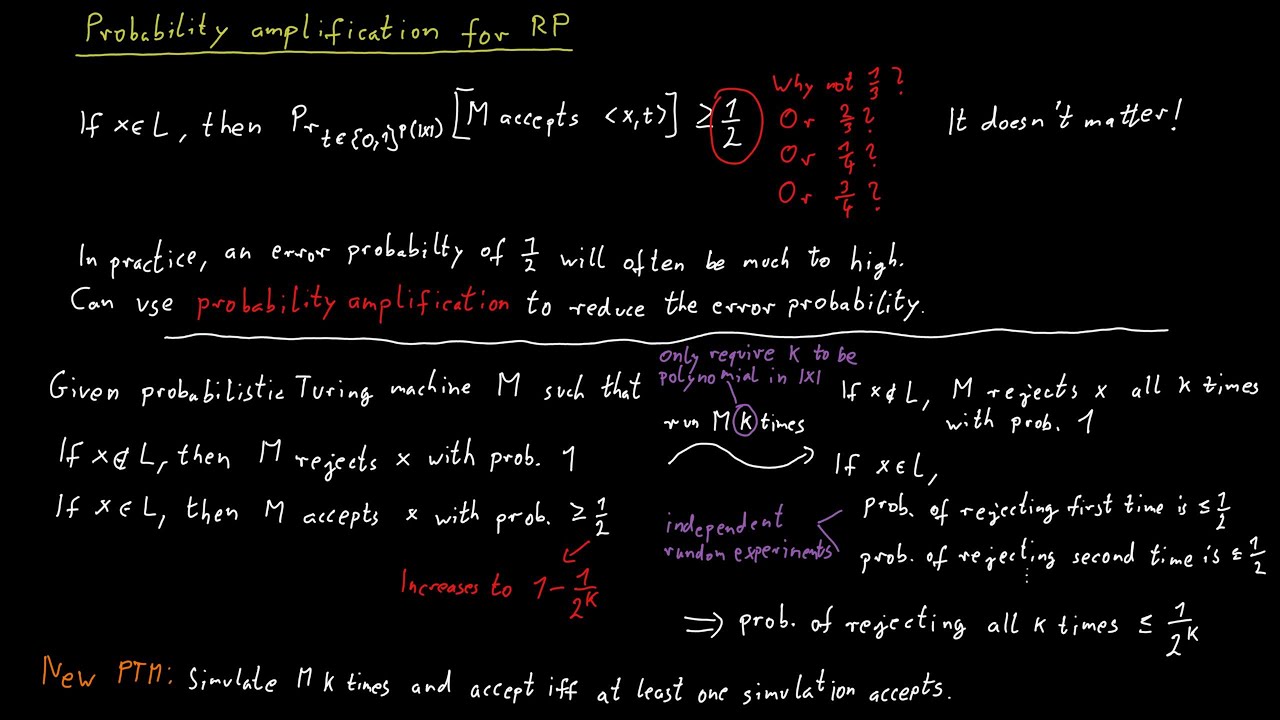 Probability amplification for RP
If x∈L, then Pr_{t∈{0,1}^{p(|x|)}} [M accepts <x,t>] ≥ 1/2
Why not 1/3?
Or 2/3?
Or 1/4?
Or 3/4?
It doesn't matter!
In practice, an error probabilty of 1/2 will often be much to high.
Can use probability amplification to reduce the error probability.
Given probabilistic Turing machine M such that
If x∉L, then M rejects x with prob. 1
If x∈L, then M accepts x with prob. ≥ 1/2
Increases to 1 - 1/2^k
only require k to be
polynomial in |x|
run M k times
independent
random experiments
If x∉L, M rejects x all k times
with prob. 1
If x∈L,
prob. of rejecting first time is ≤ 1/2
prob. of rejecting second time is ≤ 1/2
⋮
⇒ prob. of rejecting all k times ≤ 1/2^k
New PTM: Simulate M k times and accept iff at least one simulation accepts.